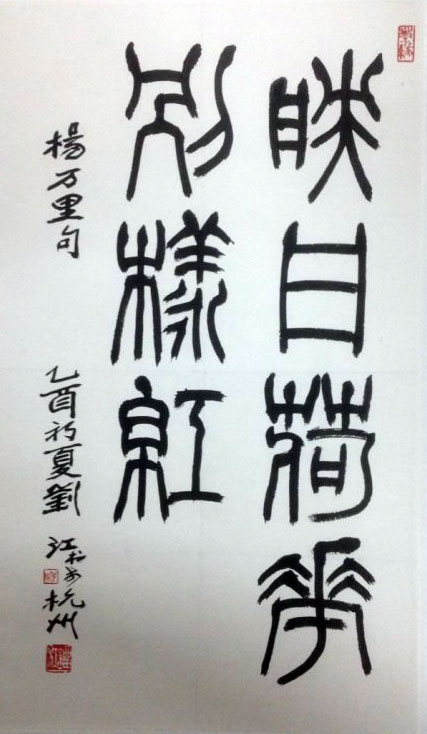 映日荷華
別樣紅
楊万里句
乙酉初夏劉江杭州